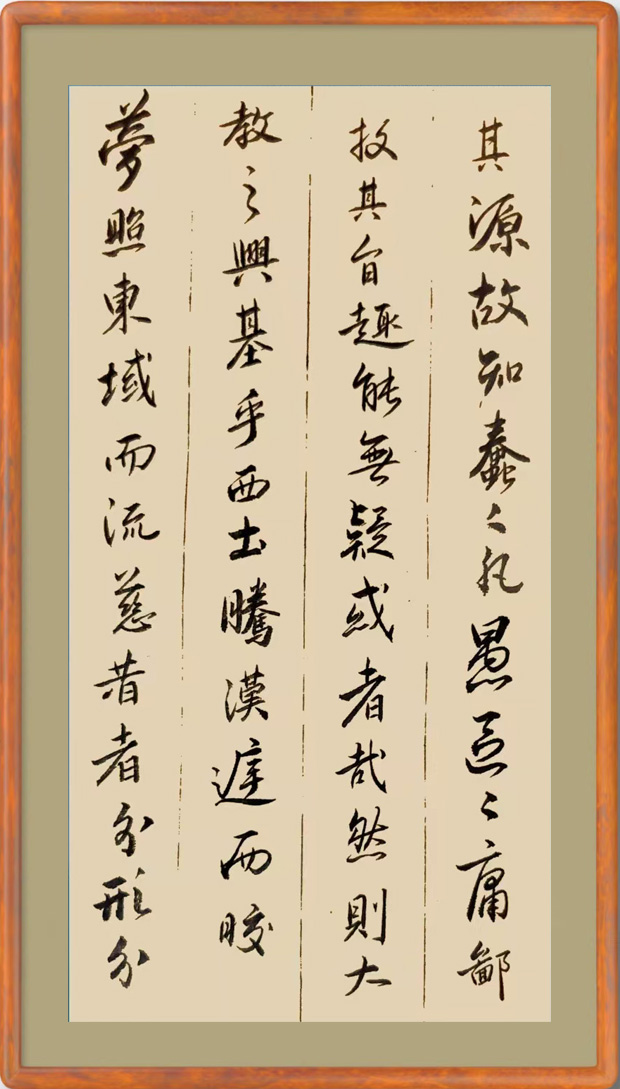 其源故知蠢々凡愚區々庸鄙
投其旨趣能無疑惑者哉然則大
教之興基乎西土騰漢庭而皎
夢照東域而流慈昔者分形分